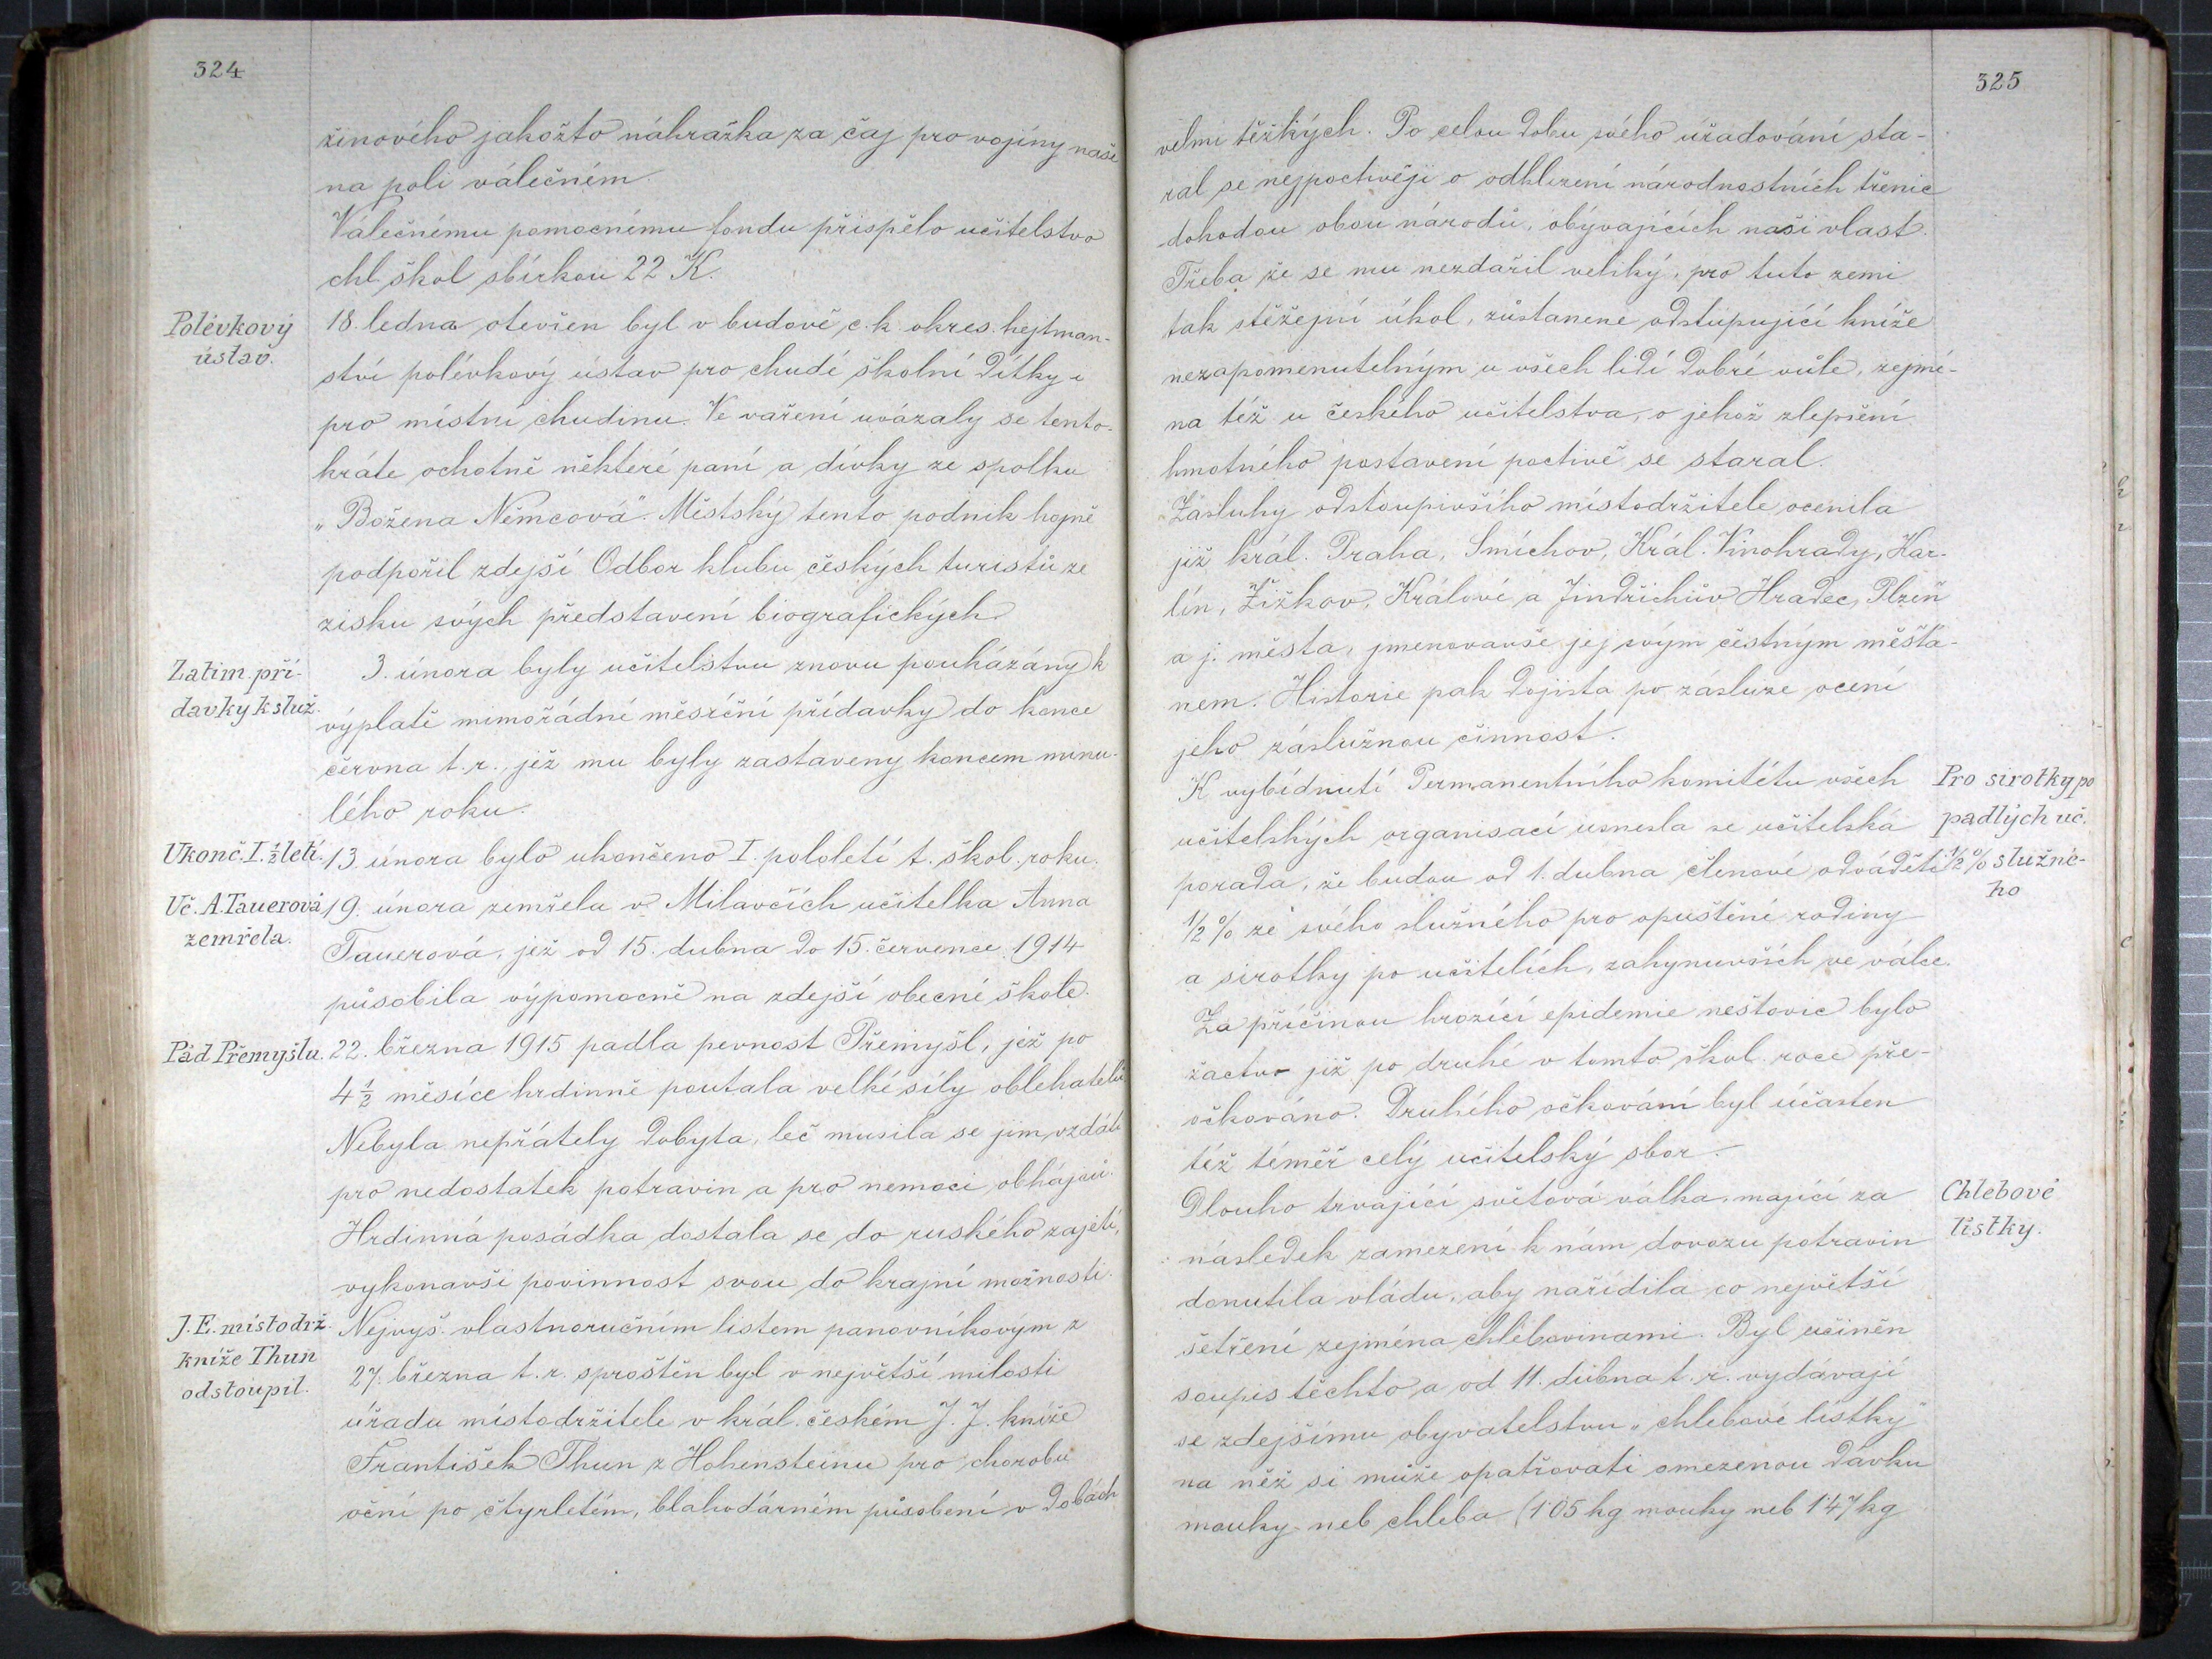 324
žinového jakožto náhražka za čaj pro vojíny naše
na poli válečném.
Válečnému pomocnému fondu přispělo učitelstvo
chl. škol sbírkou 22 K.
Polévkový
ústav.
18. ledna otevřen byl v budově c. k. okres. hejtman-
ství polévkový ústav pro chudé školní dítky i
pro místní chudinu. Ve vaření uvázaly se tento-
kráte ochotně některé paní a dívky ze spolku
„Božena Němcová“. Městský tento podnik hojně
podpořil zdejší Odbor klubu českých turistů ze
zisku svých představení biografických.
Zatim. pří-
davky k služ.
3. února byly učitelstvu znovu poukázány k
výplatě mimořádné měsíční přídavky do konce
června t. r., jež mu byly zastaveny koncem minu-
lého roku.
Ukonč. I. ½letí.
13. února bylo ukončeno I. pololetí t. škol. roku.
Uč. A. Tauerová
zemřela.
19. února zemřela v Milavčích učitelka Anna
Tauerová, jež od 15. dubna do 15. července 1914
působila výpomocně na zdejší obecné škole.
Pád Přemyšlu.
22. března 1915 padla pevnost Přemyšl, jež po
4 ½ měsíce hrdinně poutala velké síly oblehatelů
Nebyla nepřátely dobyta, leč musila se jim vzdáti
pro nedostatek potravin a pro nemoci obhájců.
Hrdinná posádka dostala se do ruského zajetí,
vykonavši povinnost svou do krajní možnosti.
J. E. místodrž.
kníže Thun
odstoupil.
Nejvyš. vlastnoručním listem panovníkovým z
27. března t. r. sproštěn byl v největší milosti
úřadu místodržitele v král. českém J. J. kníže
František Thun z Hohensteinu pro chorobu
oční po čtyrletém, blahodárném působení v dobách
325
velmi těžkých. Po celou dobu svého úřadování sta-
ral se nejpoctivěji o odklizení národnostních třenic
dohodou obou národů, obývajících naši vlast.
Třeba že se mu nezdařil veliký, pro tuto zemi
tak stěžejní úkol, zůstanene odstupující kníže
nezapomenutelným u všech lidí dobré vůle, zejmé-
na též u českého učitelstva, o jehož zlepšení
hmotného postavení poctivě se staral.
Zásluhy odstoupivšího místodržitele ocenila
již král. Praha, Smíchov, Král. Vinohrady, Kar-
lín, Žižkov, Králové a Jindřichův Hradec, Plzeň
a j. města, jmenovavše jej svým čestným měšťa-
nem. Historie pak dojista po zásluze ocení
jeho záslužnou činnost.
Pro sirotky po
padlých uč.
½ % služné-
ho
K vybídnutí Permanentního komitétu všech
učitelských organisací usnesla se učitelská
porada, že budou od 1. dubna členové odváděti
½ % ze svého služného pro opuštěné rodiny
a sirotky po učitelích, zahynuvších ve válce.
Za příčinou hrozící epidemie neštovic bylo
žactvo již po druhé v tomto škol. roce pře-
očkováno. Druhého očkování byl účasten
též téměř celý učitelský sbor.
Chlebové
lístky.
Dlouho trvající světová válka, mající za
následek zamezení k nám dovozu potravin
donutila vládu, aby nařídila co největší
šetření zejména chlebovinami. Byl učiněn
soupis těchto a od 11. dubna t. r. vydávají
se zdejšímu obyvatelstvu „chlebové lístky“
na něž si může opatřovati omezenou dávku
mouky neb chleba (1·05 kg mouky neb 1·47 kg